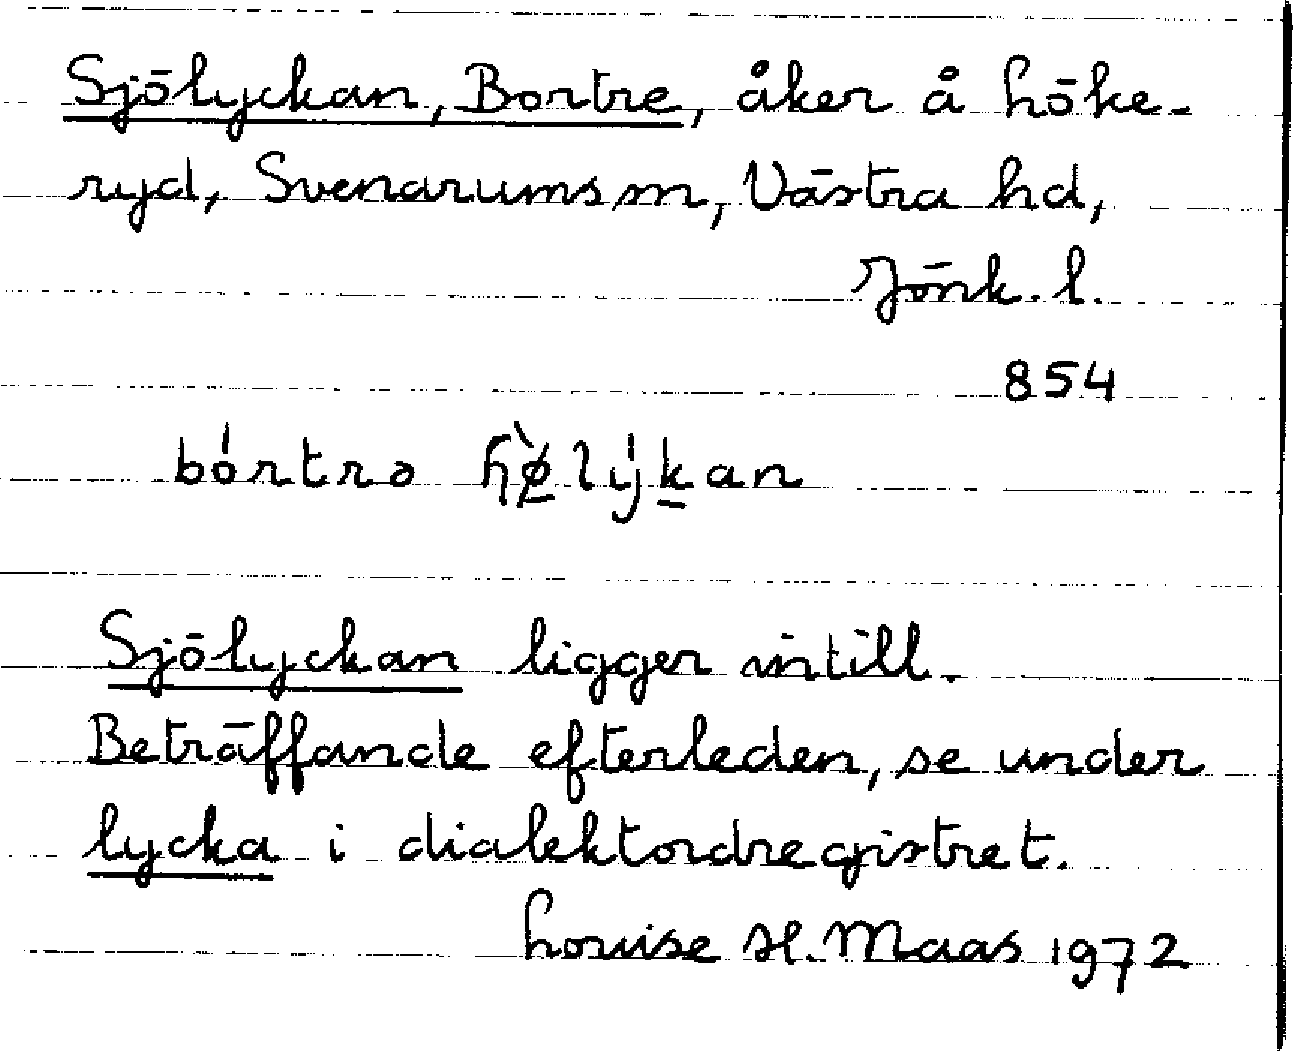 Sjölyckan, Bortre, åker å Höke-
ryd, Svenarums sn, Västra hd,
Jönk. l.
854
Sjölyckan ligger intill.
Beträffande efterleden, se under
lycka i dialektordregistret.
Louise H. Maas 1972